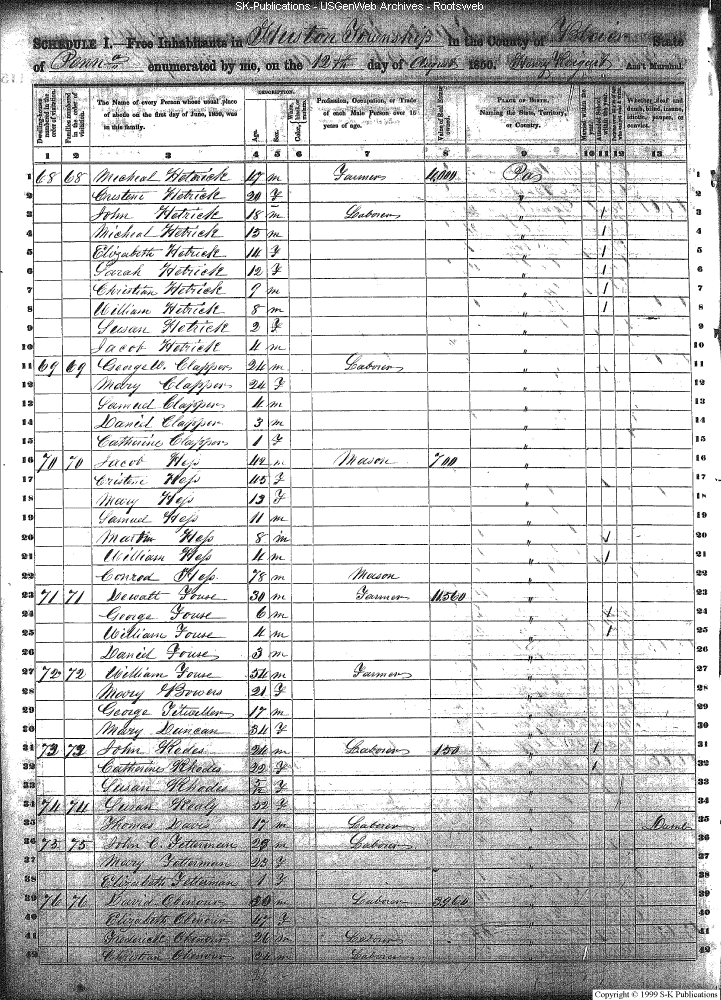 SK-Publications - USGenWeb Archives - Rootsweb
SCHEDULE I.—Free Inhabitants in Huston Township in the County of Blair State
of Penna enumerated by me, on the 12th day of August 1850. Ass't Marshal.
Dwelling-houses numbered in the order of visitation.
Families numbered in the order of visitation.
The Name of every Person whose usual place of abode on the first day of June, 1850, was in this family.
DESCRIPTION.
Age.
Sex.
White, black, or mulatto. Color,
Profession, Occupation, or Trade of each Male Person over 15 years of age.
Value of Real Estate owned.
PLACE OF BIRTH, Naming the State, Territory, or Country.
Married within the year.
Attended School within the year.
Whether deaf and dumb, blind, insane, idiotic, pauper, or convict.
1 2 3 4 5 6 7 8 9 10 11 12 13
1 68 68 Micheal Hetrick 47 m Farmer 4,000 Pa 1
2 Cristeni Hetrick 20 F " 2
3 John Hetrick 18 m Laborer " 1 3
4 Micheal Hetrick 15 m " 1 4
5 Elizabeth Hetrick 14 F " 1 5
6 Sarah Hetrick 12 F " 1 6
7 Christian Hetrick 9 m " 1 7
8 William Hetrick 8 m " 1 8
9 Susan Hetrick 2 F " 9
10 Jacob Hetrick 4 m " 10
11 69 69 George W. Clapper 24 m Laborer " 11
12 Mary Clapper 24 F " 12
13 Samuel Clapper 4 m " 13
14 Daniel Clapper 3 m " 14
15 Catherine Clapper 1 F " 15
16 70 70 Jacob Hess 42 m Mason 700 " 16
17 Cristeni Hess 45 F " 17
18 Mary Hess 13 F " 18
19 Samuel Hess 11 m " 19
20 Martin Hess 8 m " 1 20
21 William Hess 4 m " 1 21
22 Conrod Hess 78 m Mason " 22
23 71 71 Dewalt Fouse 30 m Farmer 11560 " 23
24 George Fouse 6 m " 1 24
25 William Fouse 4 m " 1 25
26 Daniel Fouse 3 m " 26
27 72 72 William Fouse 54 m Farmer " 27
28 Mary Bowers 21 F " 28
29 George 17 m " 29
30 Mary Duncan 34 F " 30
31 73 73 John Rodes 24 m Laborer 150 " 1 31
32 Catherine Rhodes 22 F " 1 32
33 Susan Rhodes F " 33
34 74 74 Susan Kealy 52 F " 34
35 Thomas Davis 17 m Laborer " Dumb 35
36 75 75 John C. Fetterman 28 m Laborer " 36
37 Mary Fetterman 23 F " 37
38 Elizabeth Fetterman 1 F " 38
39 76 76 David Obenour 50 m Laborer 3960 " 39
40 Elizabeth Obenour 47 F " 40
41 Frederick Obenour 26 m Laborer " 41
42 Christian Obenour 24 m Laborer " 42
Copyright © 1999 S-K Publications